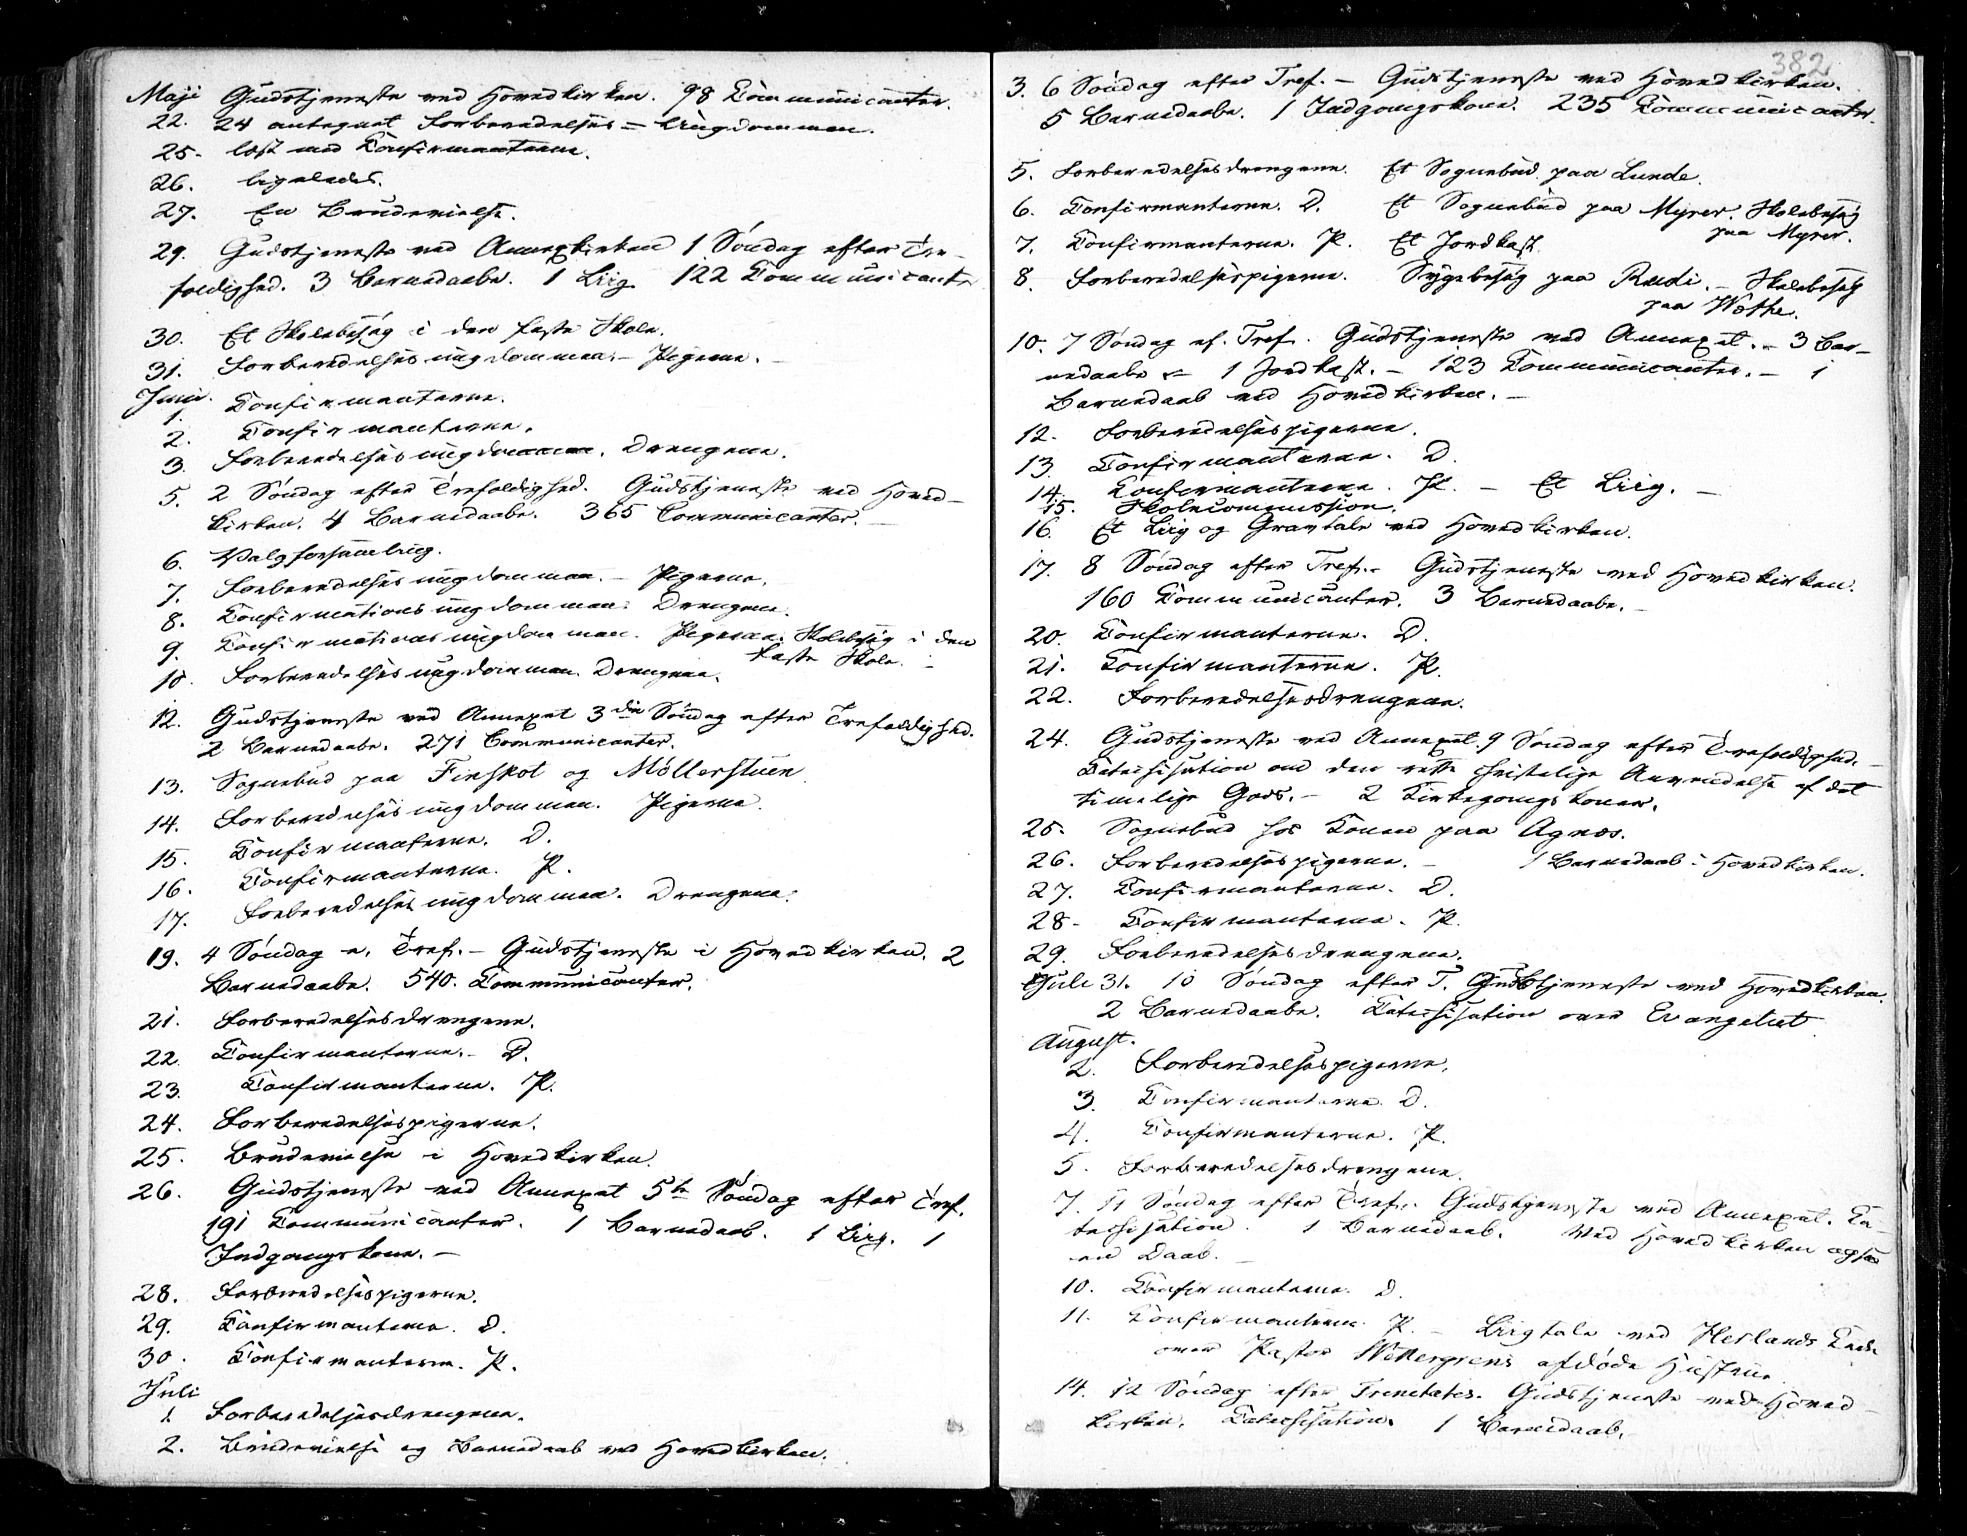 Maji Gudstjeneste ved Hovedkirken. 98 Communicanter.
22. 24 antegnet Forberedelses=Ungdommen.
25. læst med Confirmanterne.
26. ligeledes.
27. En Brudevielse.
29. Gudstjeneste ved Annexkirken 1 Søndag efter Tre-
foldighed. 3 Barnedaabe. 1 Liig 122 Communicanter
30. Et Skolebesøg i den faste Skole.
31. Forberedelsesungdommen. – Pigerne. –
Juni.
1. Confirmanterne.
2. Confirmanterne.
3. Forberedelsesungdommen. Drengene.
5. 2 Søndag efter Trefoldighed. Gudstjeneste ved Hoved-
kirken. 4 Barnedaabe. 365 Communicanter. –
6. Valgforsamling.
7. Forberedelsesungdommen. – Pigerne.
8. Confirmationsungdommen. Drengene.
9. Confirmationsungdommen. Pigerne. Skolebesøg i den
faste Skole. –
10. Forberedelsesungdommen. Drengene.
12. Gudstjeneste ved Annexet 3die Søndag efter Trefoldighed.
2 Barnedaabe. 271 Communicanter.
13. Sognebud paa Finskot og Møllerstuen
14. Forberedelsesungdommen. Pigerne.
15. Confirmanterne. D.
16. Confirmanterne. P.
17. Forberedelsesungdommen. Drengene.
19. 4 Søndag e. Tref. – Gudstjeneste i Hovedkirken. 2
Barnedaabe. 540. Communicanter.
21. Forberedelsesdrengene.
22. Confirmanterne. – D.
23. Confirmanterne. P.
24. Forberedelsespigerne.
25. Brudevielse i Hovedkirken.
26. Gudstjeneste ved Annexet 5te Søndag efter Tref.
191 Communicanter. 1 Barnedaab. 1 Liig. 1
Indgangskone. –
28. Forberedelsespigerne.
29. Confirmanterne. D.
30. Confirmanterne. P.
Juli
1. Forberedelsesdrengene.
2. Brudevielse og Barnedaab ved Hovedkirken.
382
3. 6 Søndag efter Tref. – Gudstjeneste ved Hovedkirken.
5 Barnedaabe. 1 Indgangskone. 235 Communicanter.
5. Forberedelsesdrengene. Et Sognebud paa Lunde.
6. Confirmanterne. D. Et Sognebud paa Myrer. Skolebesøg
paa Myrer.
7. Confirmanterne. P. Et Jordkast.
8. Forberedelsespigerne. Sygebesøg paa Rudi. – Skolebesøg
paa
10. 7 Søndag ef. Tref. Gudstjeneste ved Annexet. – 3 Bar-
nedaabe – 1 Jordkast. – 123 Communicanter. – 1
Barnedaab ved Hovedkirken. –
12. Forberedelsespigerne.
13. Confirmanterne. D.
14. Confirmanterne. P. – Et Liig. –
15. Skolecommission.
16. Et Liig og Gravtale ved Hovedkirken.
17. 8 Søndag efter Tref. – Gudstjeneste ved Hovedkirken.
160 Communicanter. 3 Barnedaabe. –
20. Confirmanterne. D.
21. Confirmanterne. P.
22. Forberedelsesdrengene.
24. Gudstjeneste ved Annexet. 9 Søndag efter Trefoldighed. –
Catechisation om den rette christelige Anvendelse af det
timelige Gods. – 2 Kirkegangskoner.
25. Sognebud hos Konen paa Agnes.
26. Forberedelsespigerne. – 1 Barnedaab i Hovedkirken.
27. Confirmanterne. D.
28. Confirmanterne. P.
29. Forberedelsesdrengene.
Juli 31. 10 Søndag efter T. Gudstjeneste ved Hovedkirken.
2 Barnedaabe. Catechisation over Evangeliet
August.
2. Forberedelsespigerne.
3. Confirmanterne. D.
4. Confirmanterne. P.
5. Forberedelsesdrengene.
7. 11 Søndag efter Tref. Gudstjeneste ved Annexet. Ca-
techisation. 1 Barnedaab. Ved Hovedkirken ogsaa
en Daab. –
10. Confirmanterne. D.
11. Confirmanterne. P. – Liigtale ved Herlands
over Pastor afdøde Hustrue.
14. 12 Søndag efter Trinitatis. Gudstjeneste ved Hoved-
kirken. Catechisation. 1 Barnedaab.